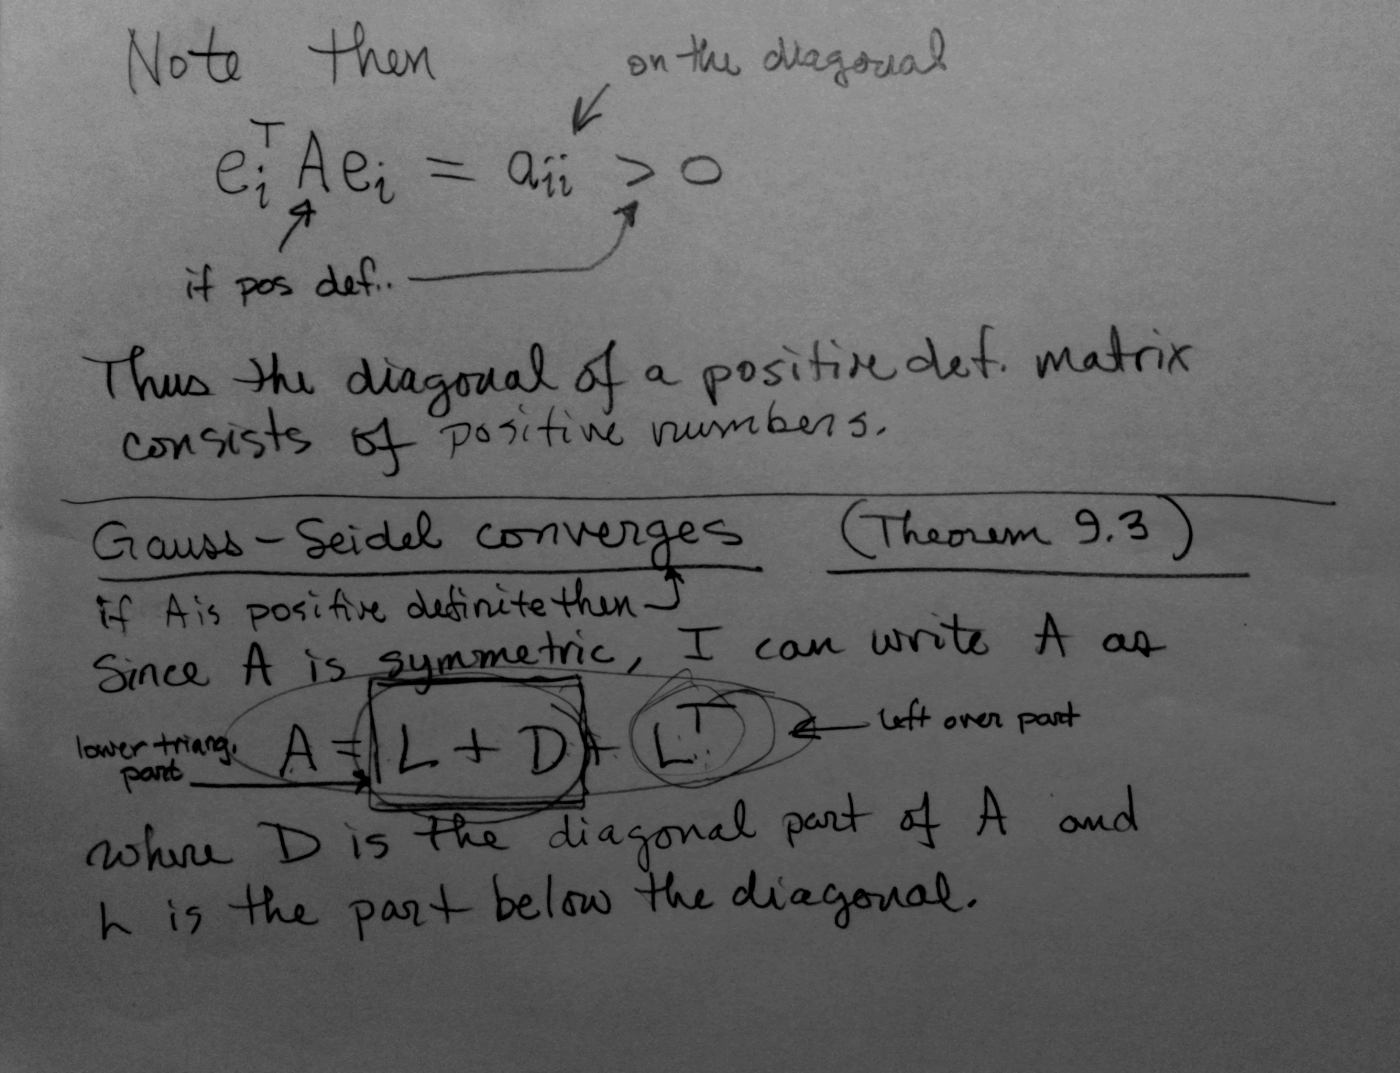 Note then
on the diagonal
eᵢᵀ A eᵢ = aᵢᵢ > 0
if pos def..
Thus the diagonal of a positive def. matrix
consists of positive numbers.
Gauss-Seidel converges (Theorem 9.3)
if A is positive definite then
Since A is symmetric, I can write A as
lower triang. part
A = L + D + Lᵀ
left over part
where D is the diagonal part of A and
L is the part below the diagonal.